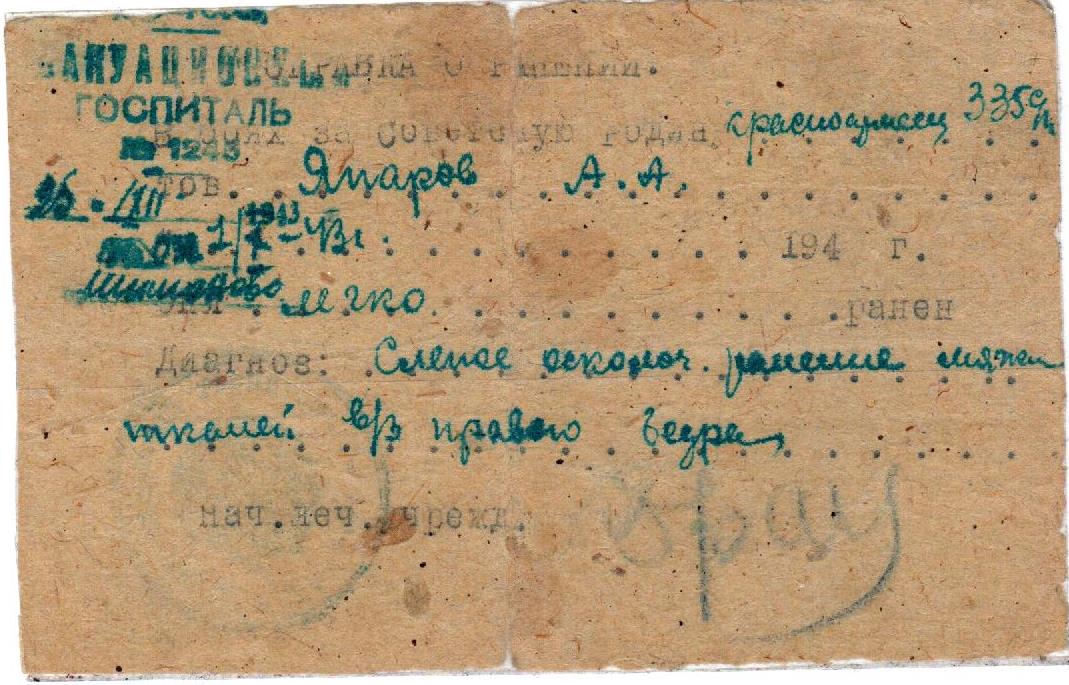 ЭВАКУАЦИОННЫЙ
ГОСПИТАЛЬ
№ 1243
СПРАВКА О РАНЕНИИ.
В боях за Советскую Родину красноармеец 335 с/п
тов. Япаров А. А.
1943
1/X-43г. 194 г.
был легко ранен
Диагноз: Слепое осколоч. ранение мягких
тканей в/з правого бедра
Нач.леч.учрежд.